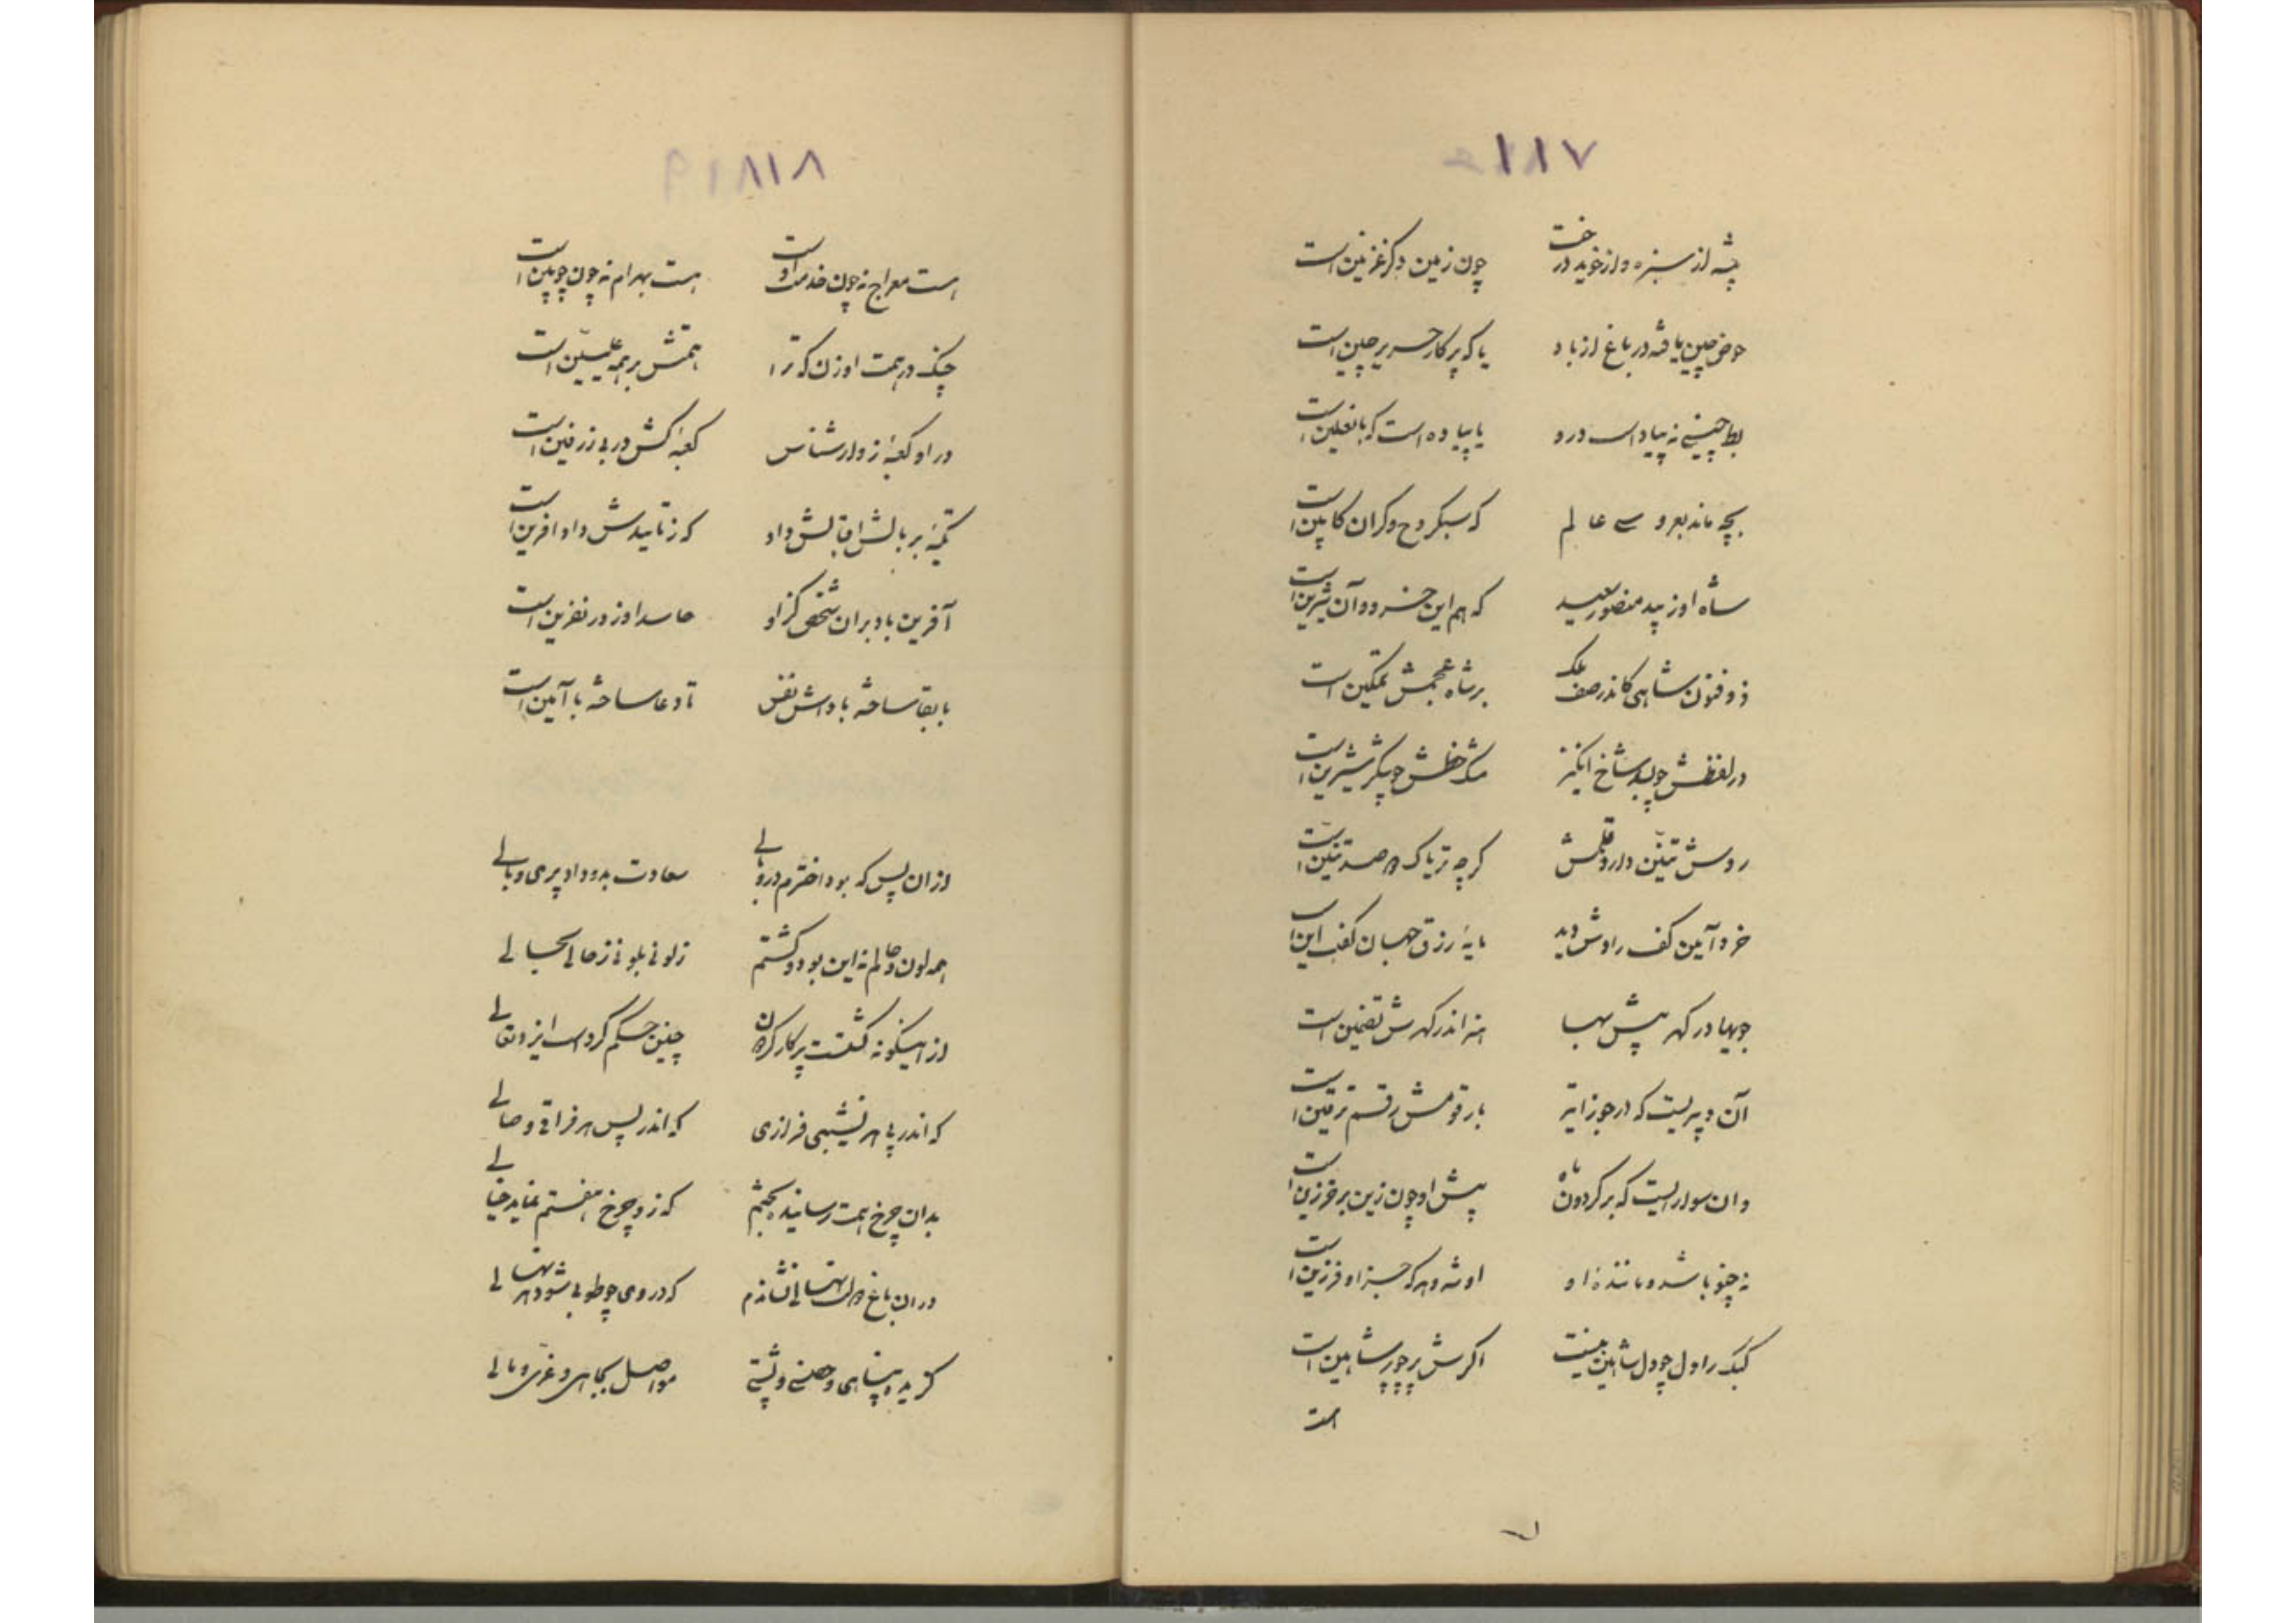 ۱۱۷
پشه از سبزه و از خوید درخت	چون زمین دگر غزنین است
حوض چین یافته در باغ از باد	یا که پر کار حریر چین است
بط چینی نه پیاده است درو	یا پیاده است که با نعلین است
بچه ماند بعروسی عالم	که سبکروح و گران کابین است
شاه او زیبد منصور سعید	که هم این خسرو و آن شیرین است
ذوفنون شاهی کاندر صف ملک	بر شاه عجمش تمکین است
در لفظش چو پدر شاخ انگیز	مشک خطش چو پسر شیرین است
روش تنّین دارد قلمش	گرچه تریاک دو صد تنّین است
خرد آیین کف رادش دید	مایهٔ رزق جهان گفت این است
چو بها در گهر بیش بها	منه اندر گهرش تضمین است
آن دبیریست که در جوزا تیر	با رقومش رقم ترقین است
وان سواریست که بر گردون ماه	پیش او چون زین بر خرزین است
نه چنو باشد و مانندهٔ او	او شه و هر که جز او فرزین است
کبک را دل چو دل شاهین نیست	اگرش پر چو پر شاهین است
است
۸۱۸
است معراج نه چون خدمت او است	هست بهرام نه چون چوبین است
چنگ در همت او زن که ترا	همتش بر همه علیین است
در او کعبهٔ زوار شناس	کعبهٔ کش در بی زرفین است
تکیه بر بالش اقبالش داد	که ز تاییدش داد آفرین است
آفرین باد بران شخص کزاو	حاسد او ز در نفرین است
با بقا ساخته بادش نفس	تا دعا ساخته با آمین است
ازان پس که بود اخترم در وبالی	سعادت بدو داد پری و بالی
همه لون و حالم نه این بود و گشتم	ز لونی بلونی ز حالی بحالی
از اینگونه گشتست پرگار گردون	چنین حکم کردست ایزد تعالی
که اندر پی هر نشیبی فرازی	که اندر پس هر فراقی وصالی
بدان چرخ همت رسانیده بختم	که زو چرخ هفتم نماید خیالی
در ان باغ دولت نهالی نشاندم	که در وی چو طوبی شود هر نهالی
گزیده پناهی و حصنی و پشتی	مواصل بجاهی و عزّی و مالی